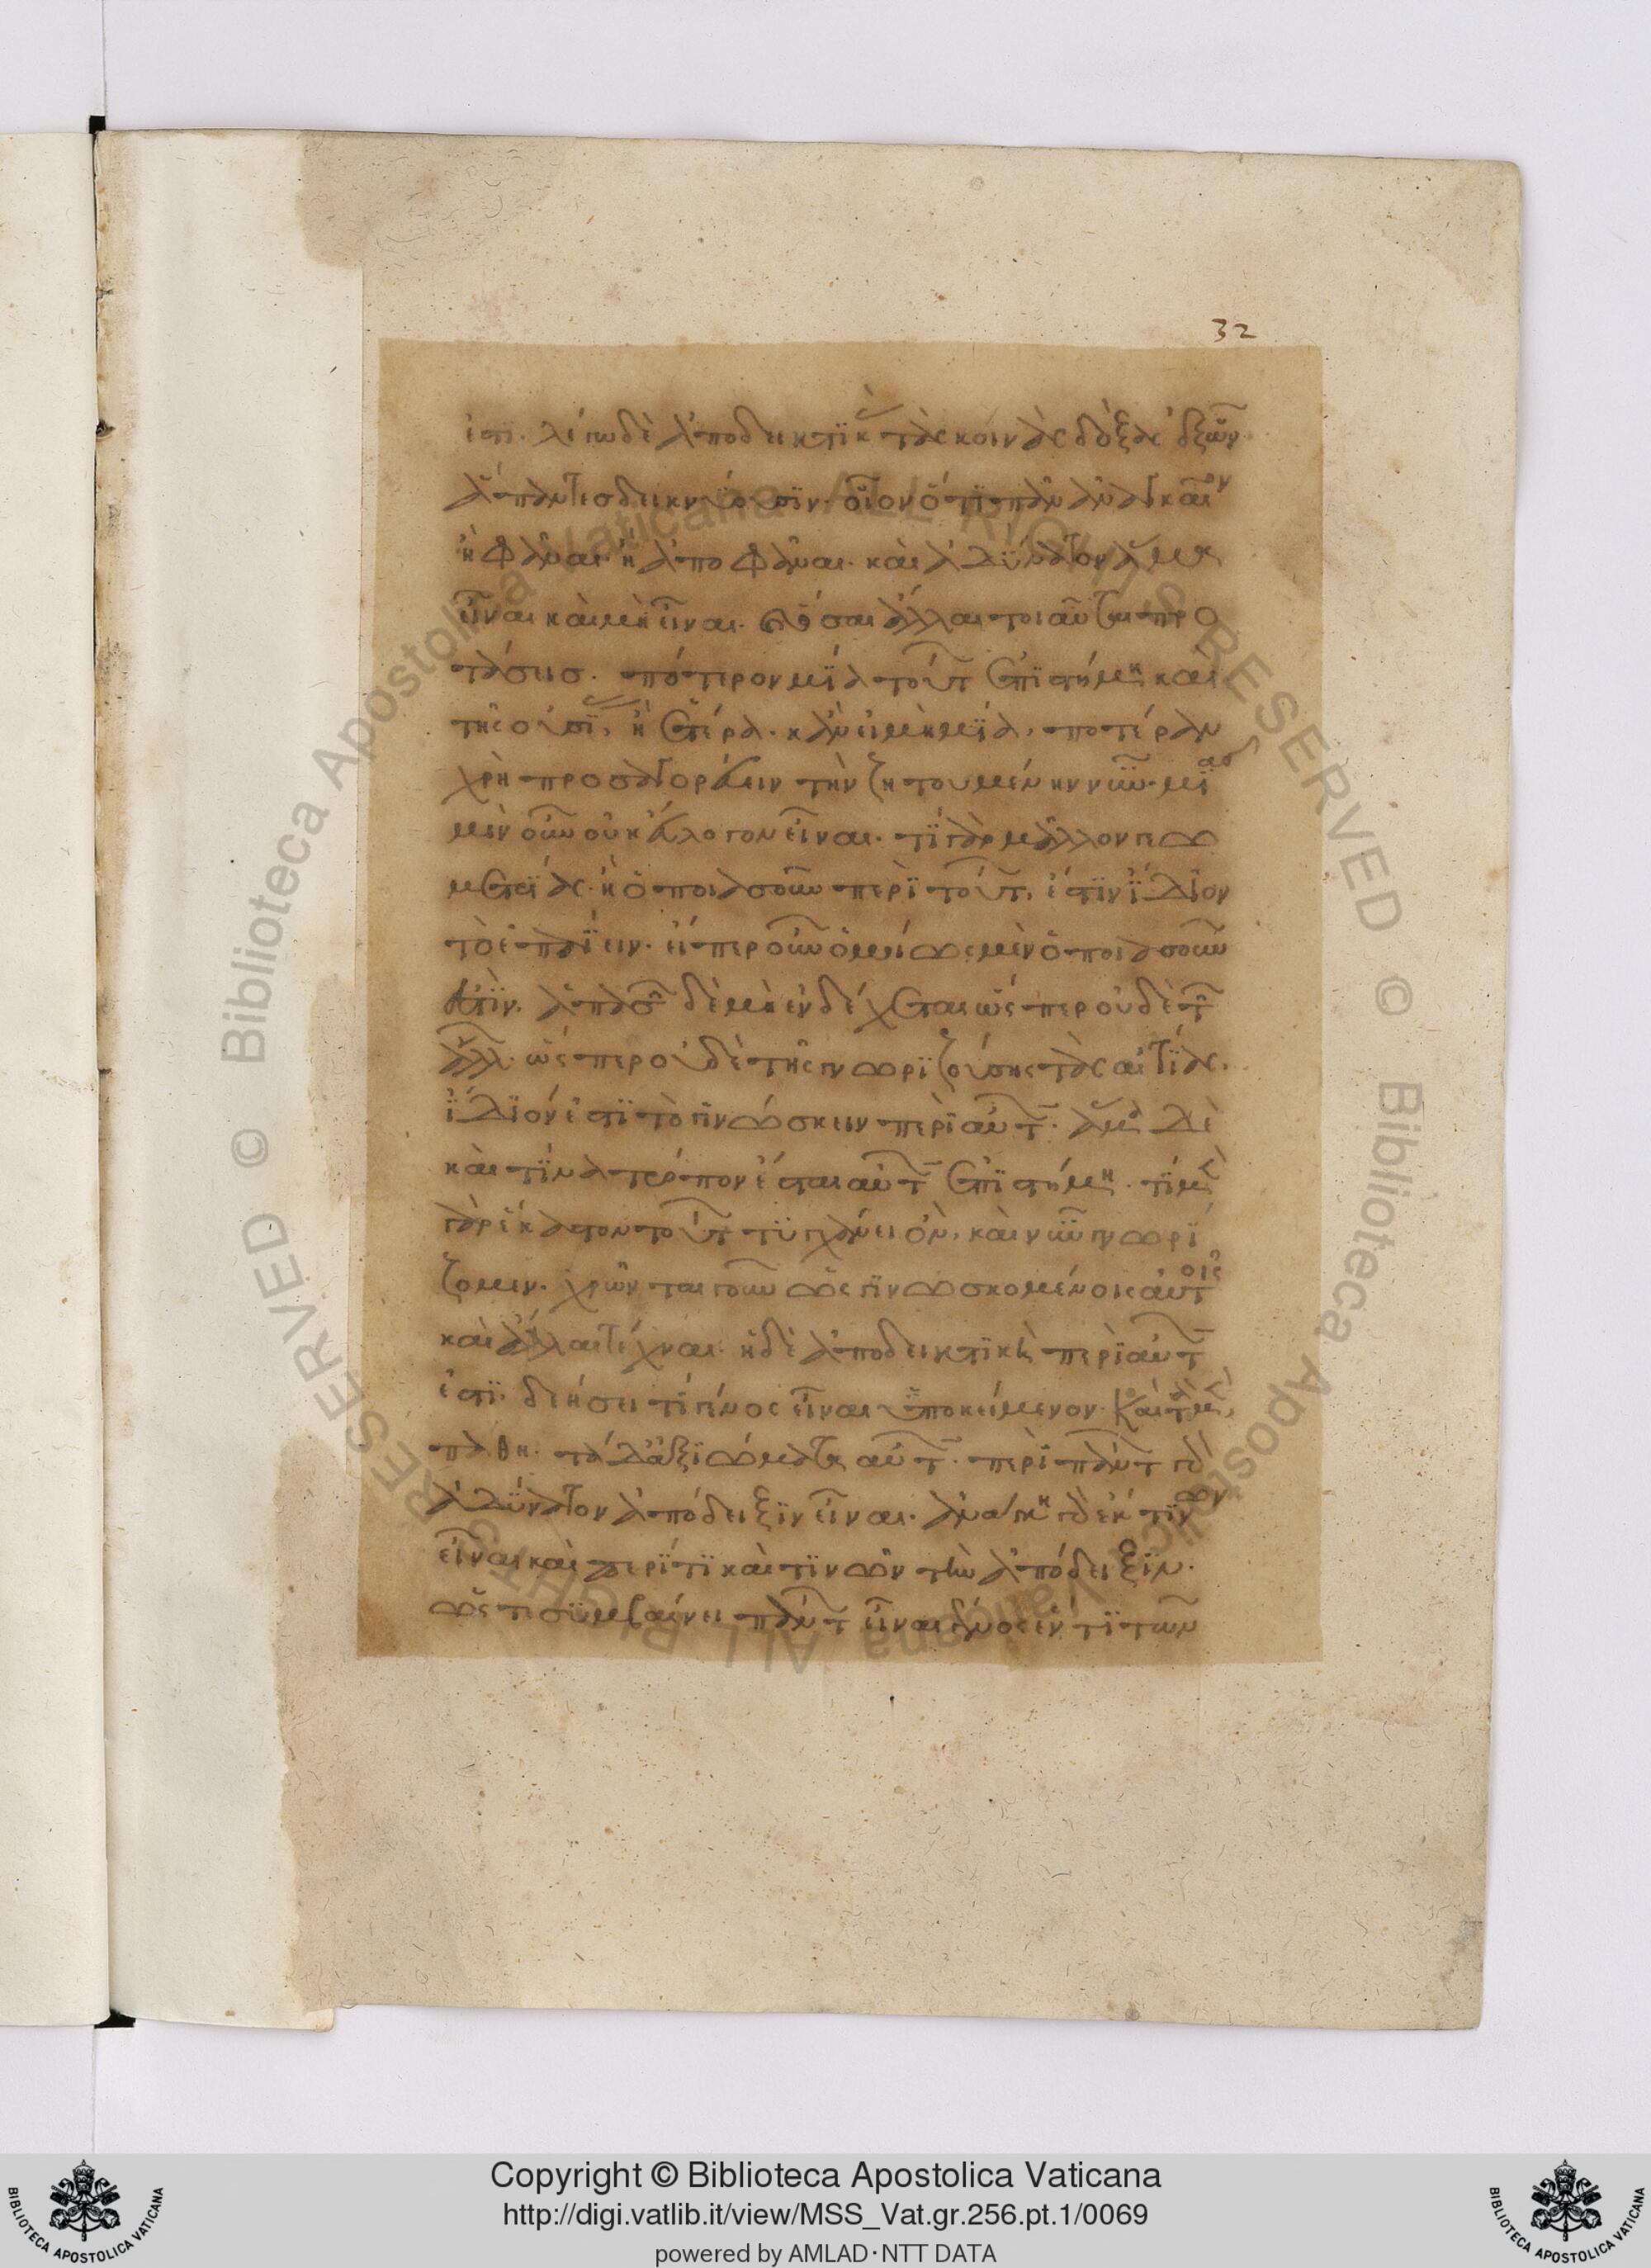 32
ἐστι. λέγω δὲ ἀποδεικτικὰς τὰς κοινὰς δόξας ἐξ ὧν
ἅπαντες δεικνύουσιν. οἷον ὅτι πᾶν ἀναγκαῖον
ἢ φάναι ἢ ἀποφάναι. καὶ ἀδύνατον ἅμα
εἶναι καὶ μὴ εἶναι. καὶ ὅσαι ἄλλαι τοιαῦται προ
τάσεισ. πότερον μία τούτων ἐπιστήμη καὶ
τῆς οὐσίας, ἢ ἑτέρα. κἂν εἰ μὴ μία, ποτέραν
χρὴ προσαγορεύειν τὴν ζητουμένην νῦν. μιᾶς
μὲν οὖν οὐκ εὔλογον εἶναι. τί γὰρ μᾶλλον γεω
μετρίας ἢ ὁποιασοῦν περὶ τούτων, ἐστὶν ἴδιον
τὸ ἐπαΐειν. εἴπερ οὖν ὁμοίως μὲν ὁποιασοῦν
ἐστίν. ἁπασῶν δὲ μὴ ἐνδέχεται ὥσπερ οὐδὲ τῶν
ἄλλων. ὥσπερ οὐδὲ τῆς γνωριζούσης τὰς αἰτίας.
ἴδιόν ἐστι τὸ γινώσκειν περὶ αὐτῶν. ἅμα δὲ
καὶ τίνα τρόπον ἔσται αὐτῶν ἐπιστήμη. τί μὲν
γὰρ ἕκαστον τούτων τυγχάνει ὄν, καὶ νῦν γνωρί
ζομεν. χρῶνται γοῦν ὡς γινωσκομένοις αὐτοῖς
καὶ ἄλλαι τέχναι. εἰ δὲ ἀποδεικτικὴ περὶ αὐτῶν
ἐστι. δεήσει τι γένος εἶναι ὑποκείμενον. καὶ τὰ μὲν
πάθη. τὰ δ' ἀξιώματα αὐτῶν. περὶ πάντων γὰρ
ἀδύνατον ἀπόδειξιν εἶναι. ἀνάγκη γὰρ ἔκ τινων
εἶναι καὶ περί τι καὶ τινῶν τὴν ἀπόδειξιν.
ὥστε συμβαίνει πάντων εἶναι γένος ἕν τι τῶν
Copyright © Biblioteca Apostolica Vaticana
http://digi.vatlib.it/view/MSS_Vat.gr.256.pt.1/0069
powered by AMLAD·NTT DATA
BIBLIOTECA APOSTOLICA VATICANA
BIBLIOTECA APOSTOLICA VATICANA